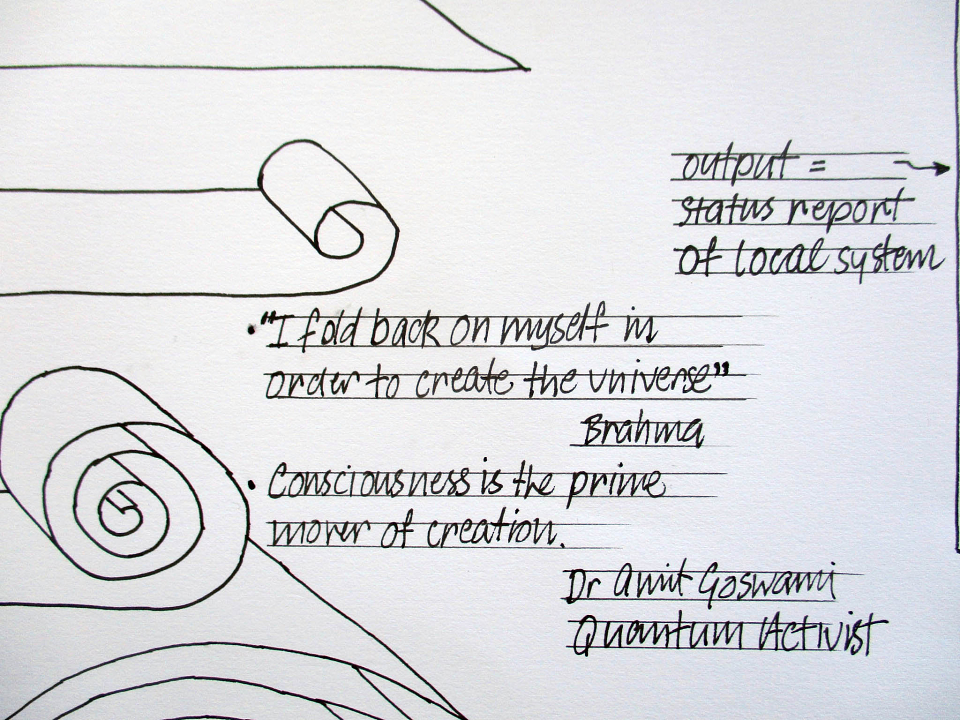 output = →
status report
of local system
• "I fold back on myself in
order to create the universe"
Brahma
• Consciousness is the prime
mover of creation.
Dr Amit Goswami
Quantum Activist